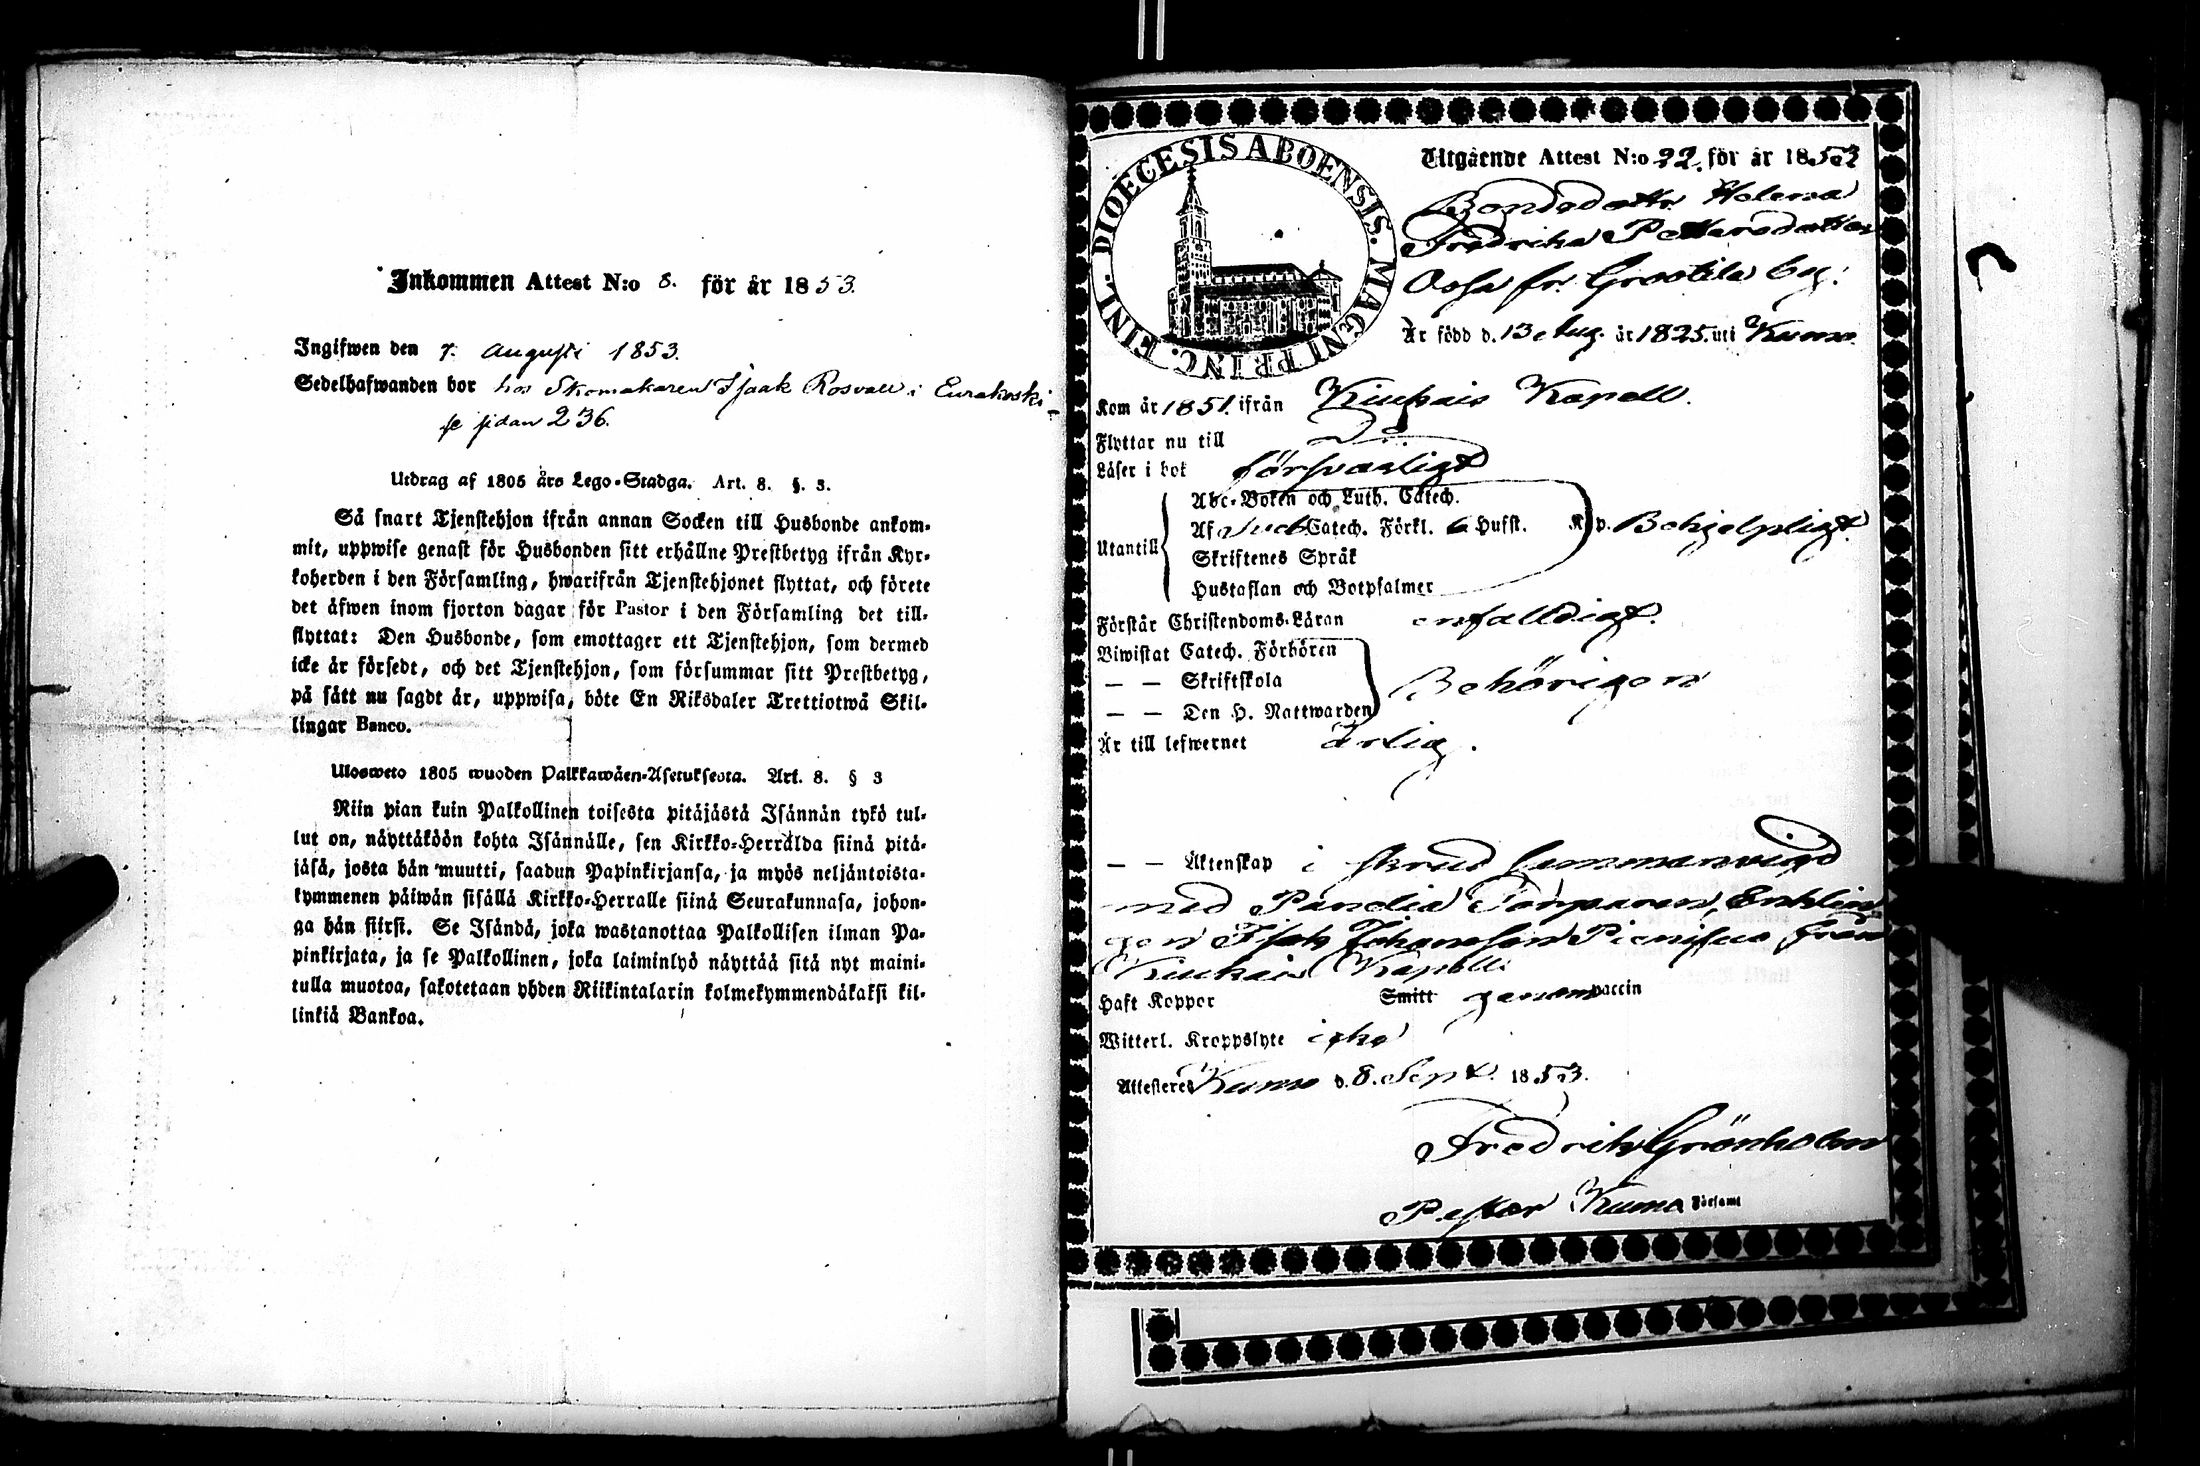 Inkommen Attest N:o 8. för år 1853.
Ingifwen den 7. Augusti 1853.
Sedelhafwanden bor hos Skomakaren Isaak Rosvall i Eurakoski
se sidan 236.
Utdrag af 1805 års Lego-Stadga. Art. 8. §. 3.
Så snart Tjenstehjon ifrån annan Socken till Husbonde ankom-
mit, uppwise genast för Husbonden sitt erhållne Prestbetyg ifrån Kyr-
koherden i den Församling, hwarifrån Tjenstehjonet flyttat, och förete
det äfwen inom fjorton dagar för Pastor i den Församling det till-
flyttat: Den Husbonde, som emottager ett Tjenstehjon, som dermed
icke är försedt, och det Tjenstehjon, som försummar sitt Prestbetyg,
på sätt nu sagdt är, uppwisa, böte En Riksdaler Trettiotwå Skil-
lingar Banco.
Ulosweto 1805 wuoden Palkkawäen-Asetuksesta. Art. 8. § 3
Niin pian kuin Palkollinen toisesta pitäjästä Isännän tykö tul-
lut on, näyttäköön kohta Isännälle, sen Kirkko-Herralda siinä pitä-
jäsä, josta hän muutti, saadun Papinkirjansa, ja myös neljäntoista-
kymmenen päiwän sisällä Kirkko-Herralle siinä Seurakunnasa, johon-
ga hän siirsi. Se Isändä, joka wastanottaa Palkollisen ilman Pa-
pinkirjata, ja se Palkollinen, joka laiminlyö näyttää sitä nyt maini-
tulla muotoa, sakotetaan yhden Riikintalarin kolmekymmendäkaksi kil-
linkiä Bankoa.
DIOECESIS ABOENSIS. MAGNI PRINC. FINL.
Utgående Attest N:o 22. för år 1853
Bondedottr Helena
Fredrika Pettersdotter
Ossa fr. Grootila by.
Är född d. 13 Aug. år 1825. uti Kumo
Kom år 1851. ifrån Kiukais Kapell.
Flyttar nu till Do
Läser i bok försvarligt
Abc-Boken och Luth. Catech.
Utantill Af Sveb Catech. Förkl. 6 Hufst. Behjelpligt.
Skriftenes Språk
Hustaflan och Botpsalmer
Förstår Christendoms-Läran enfalldigt.
Biwistat Catech. Förhören
— — Skriftskola Behörigen
— — Den H. Nattwarden
Är till lefwernet Ärlig.
— — Äktenskap i sammanvigd
med Panelia Torparen, Enklin
gen Isak Johansson från
Kiukais Kapell.
Haft Koppor Smitt genom vaccin
Witterl. Kroppslyte icke
Attesteres Kumo d. 8. Sept. 1853.
Fredrik Grönholm
Pastor Kumo Församl